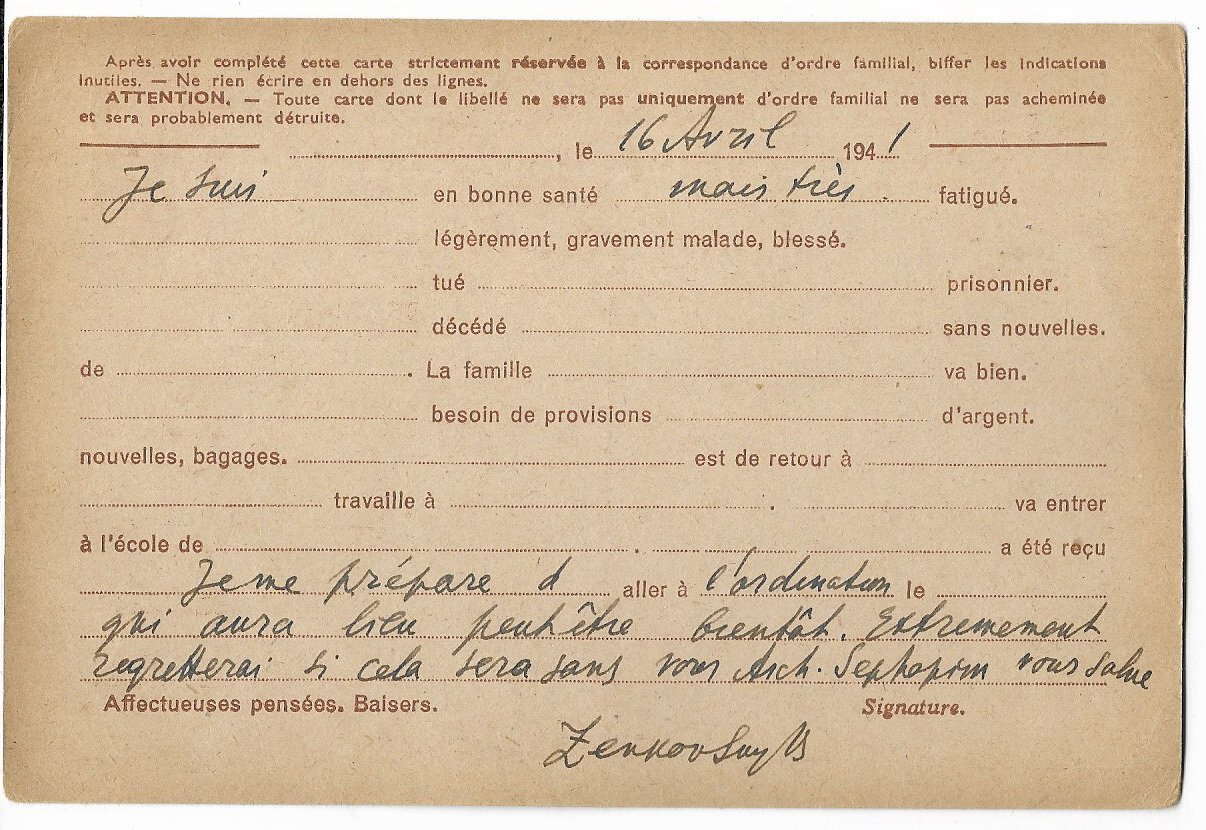 Après avoir complété cette carte strictement réservée à la correspondance d'ordre familial, biffer les indications
inutiles. — Ne rien écrire en dehors des lignes.
ATTENTION. — Toute carte dont le libellé ne sera pas uniquement d'ordre familial ne sera pas acheminée
et sera probablement détruite.
, le 16 Avril 1941
Je suis en bonne santé mais très fatigué.
légèrement, gravement malade, blessé.
tué prisonnier.
décédé sans nouvelles.
de . La famille va bien.
besoin de provisions d'argent.
nouvelles, bagages. est de retour à
travaille à . va entrer
à l'école de . a été reçu
Je me prépare d aller à l'ordination le
qui aura lieu peut être bientôt. Extremement
regretterai si cela sera sans vous Arch. vous salue
Affectueuses pensées. Baisers. Signature.